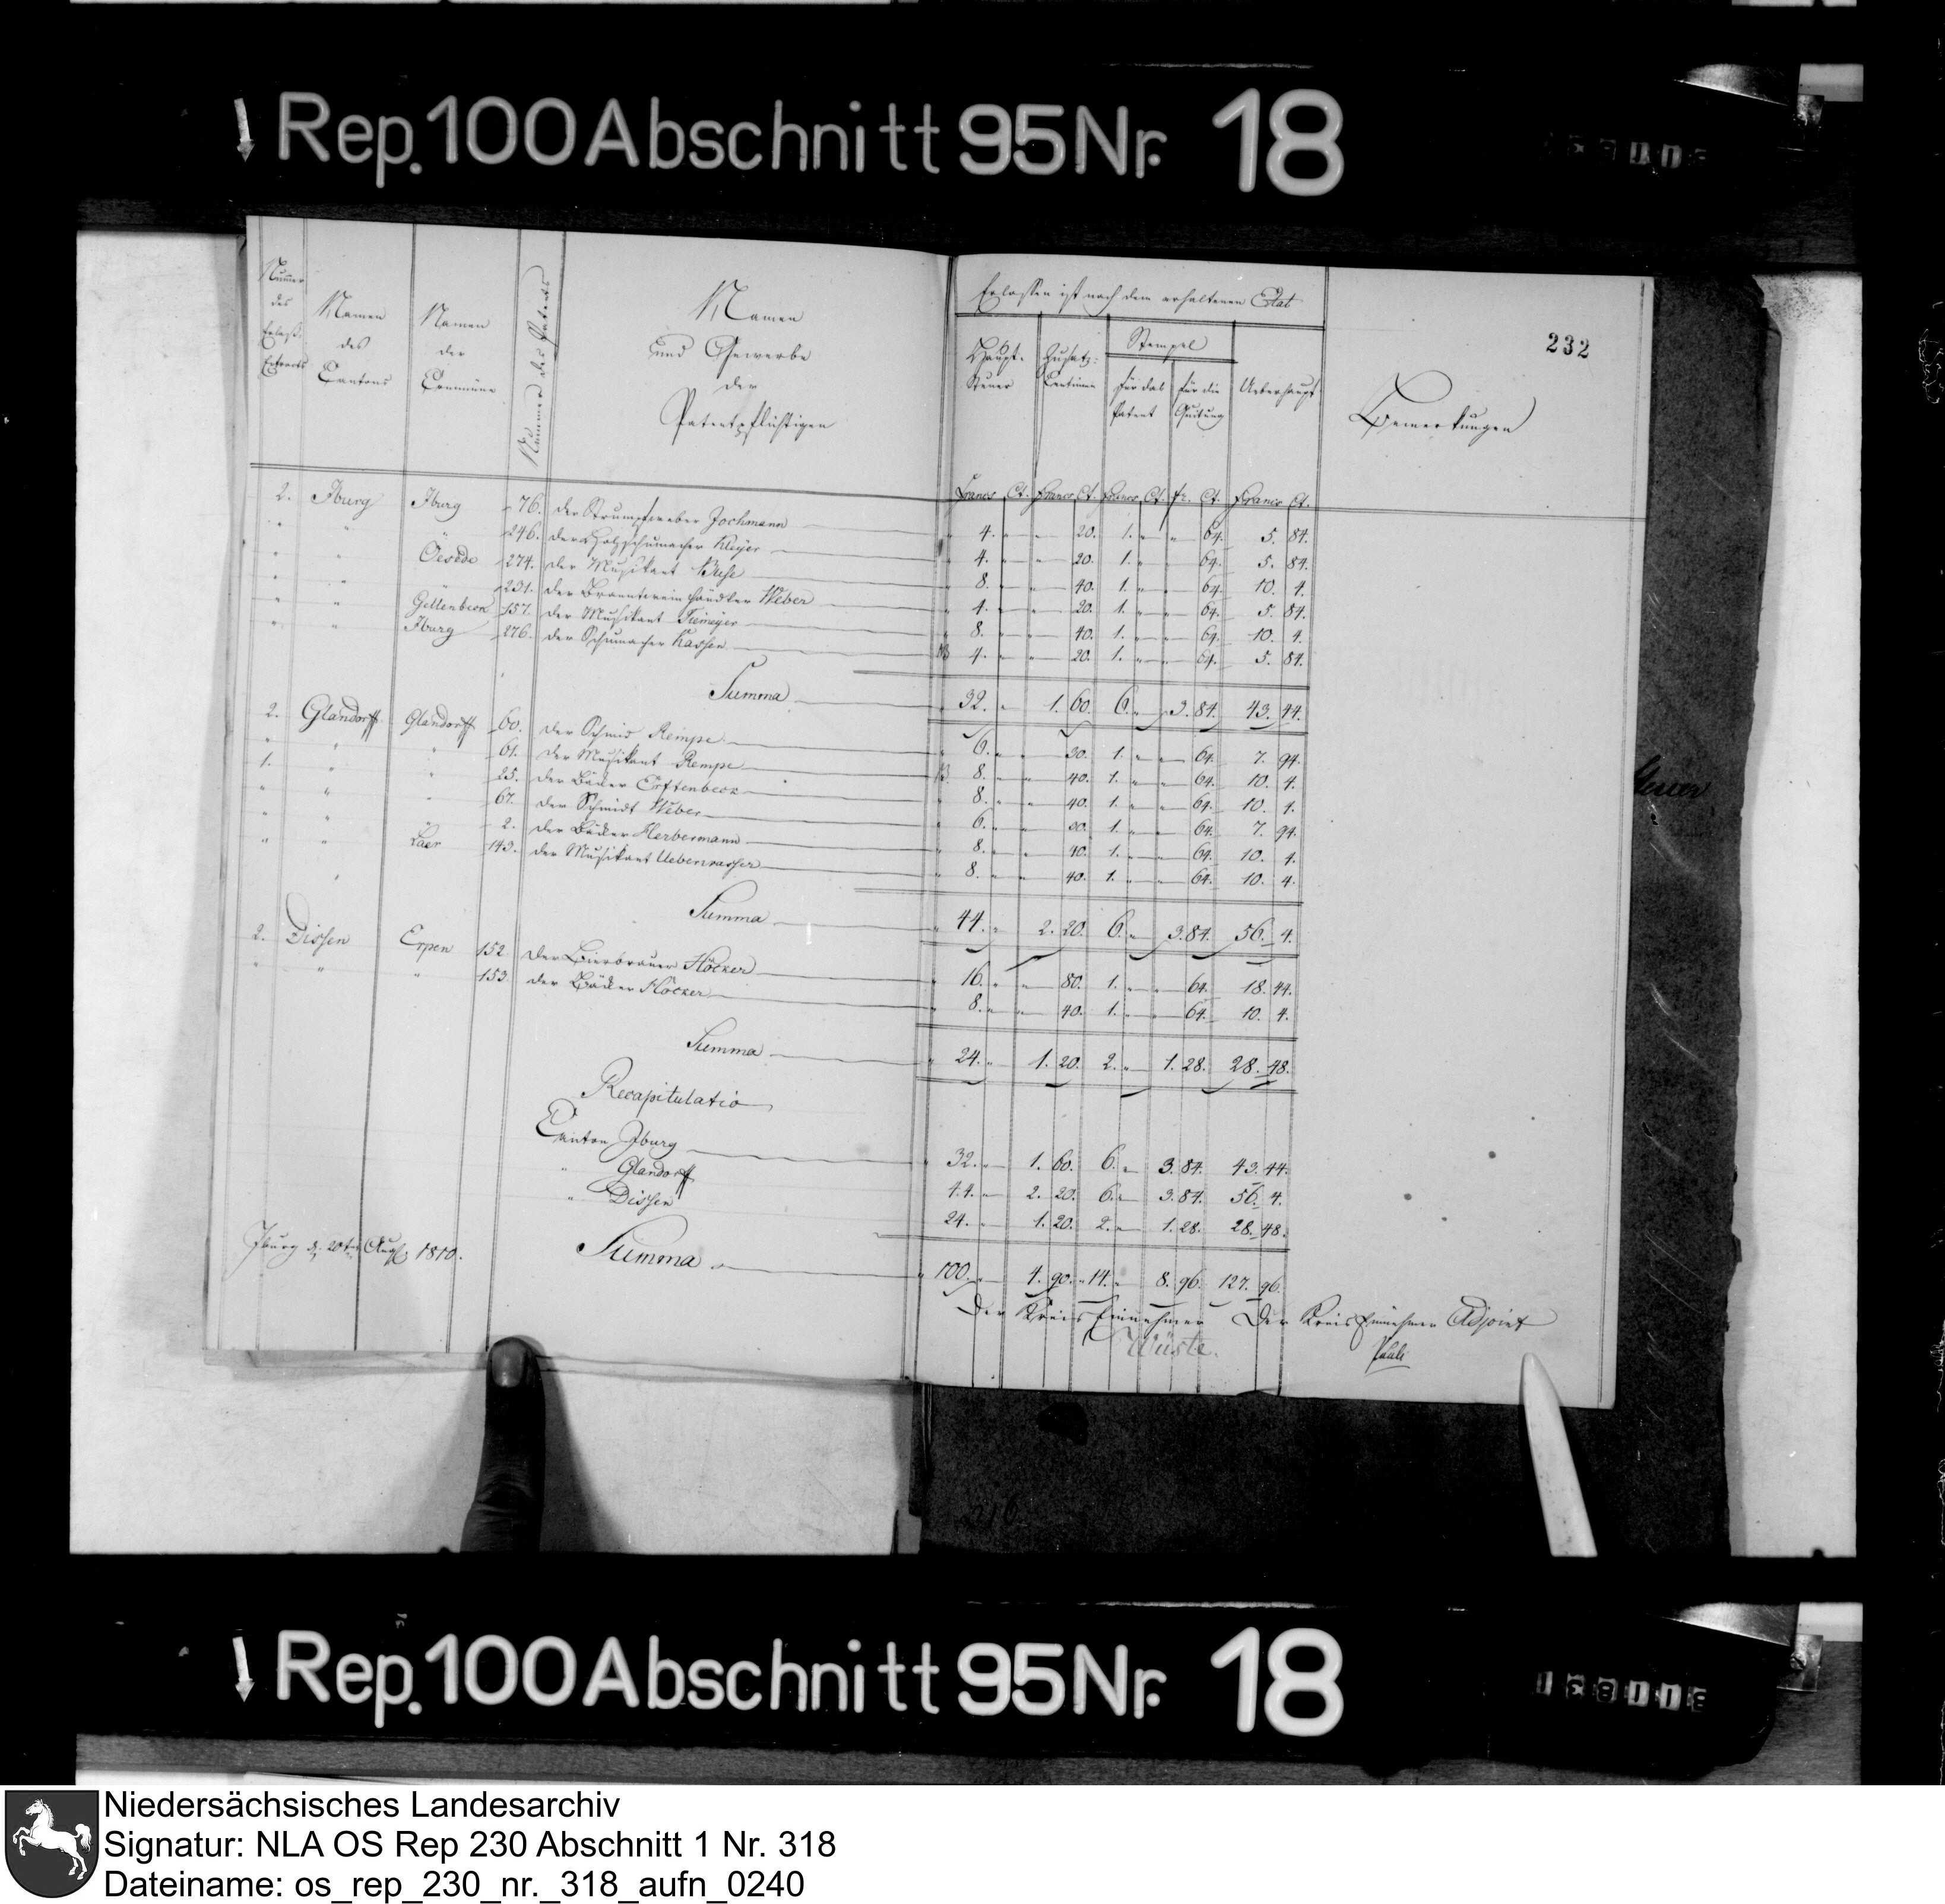 Rep. 100 Abschnitt 95 Nr. 18
232
Nummer des Erlaß Extracts
Namen des Cantons
Namen der Commüne
Nummer des Patents
Namen und Gewerbe der Patentpflichtigen
Erlassen ist nach dem erhaltenen Etat
Haupt-Steuer
Zusatz-Centimen
Stempel
für das Patent
für die Quitung
Ueberhaupt
Bemerkungen
Francs Ct. Francs Ct. Francs Ct. fr. Ct. Francs Ct.
2. Iburg Iburg 76. der Strumpfweber Jochmann 4. " " 20. 1. " " 64. 5. 84.
" " 246. der Holzschumacher Kleyer 4. " " 20. 1. " " 64. 5. 84.
" " Oesede 274. der Musikant Buse 8. " " 40. 1. " " 64. 10. 4.
" " " 231. der Branntwein händler Weber 4. " " 20. 1. " " 64. 5. 84.
" " Gellenbeck 157. der Musikant Tiemeyer 8. " " 40. 1. " " 64. 10. 4.
" " Iburg 276. der Schumacher Kassen 4. " " 20. 1. " " 64. 5. 84.
Summa 32. " 1. 60. 6. " 3. 84. 43. 44.
2. Glandorff Glandorff 60. der Schmid Rempe 6. " " 30. 1. " " 64. 7. 94.
" " " 61. der Musikant Rempe 8. " " 40. 1. " " 64. 10. 4.
1. " " 25. der Bäcker Erftenbeck 8. " " 40. 1. " " 64. 10. 4.
" " " 67. der Schmidt Weber 6. " " 30. 1. " " 64. 7. 94.
" " " 2. der Bäcker Herbermann 8. " " 40. 1. " " 64. 10. 4.
" " Laer 143. der Musikant Uebenwasser 8. " " 40. 1. " " 64. 10. 4.
Summa 44. " 2. 20. 6. " 3. 84. 56. 4.
2. Dissen Erpen 152. der Bierbrauer Höcker 16. " " 80. 1. " " 64. 18. 44.
" " " 153. der Bäcker Höcker 8. " " 40. 1. " " 64. 10. 4.
Summa 24. " 1. 20. 2. " 1. 28. 28. 48.
Recapitulatio
Canton Iburg 32. " 1. 60. 6. " 3. 84. 43. 44.
" Glandorff 44. " 2. 20. 6. " 3. 84. 56. 4.
" Dissen 24. " 1. 20. 2. " 1. 28. 28. 48.
Iburg d. 20ten Augs. 1810.
Summa 100. " 4. 90. " 14. " 8. 96. 127. 96.
Der Kreis Einnehmer Der Kreis Einnehmer Adjoint
Wüste.
Rep. 100 Abschnitt 95 Nr. 18
Niedersächsisches Landesarchiv
Signatur: NLA OS Rep 230 Abschnitt 1 Nr. 318
Dateiname: os_rep_230_nr._318_aufn_0240